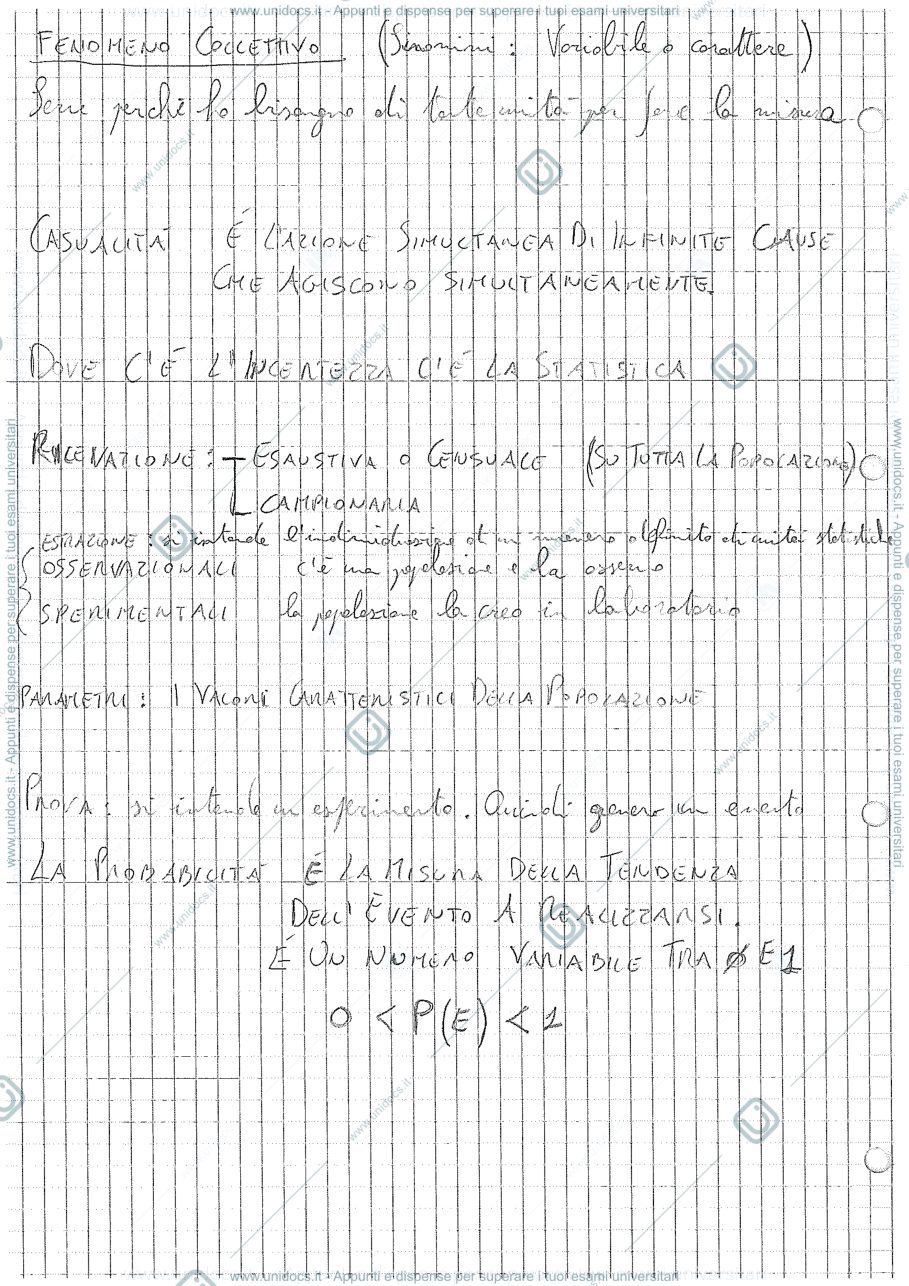 www.unidocs.it - Appunti e dispense per superare i tuoi esami universitari
FENOMENO COLLETTIVO (Sinonimi : Variabile o carattere)
Serve perché ho bisogno di tante unità per fare la misura
CASUALITA' É L'AZIONE SIMULTANEA DI INFINITE CAUSE
CHE AGISCONO SIMULTANEAMENTE.
DOVE C'É L'INCERTEZZA C'É LA STATISTICA
RILEVAZIONE : ESAUSTIVA O CENSUALE (SU TUTTA LA POPOLAZIONE)
CAMPIONARIA
ESTRAZIONE : si intende l'individuazione di un numero definito di unità statistiche
OSSERVAZIONALI c'è una popolazione e la osservo
SPERIMENTALI la popolazione la creo in laboratorio
PARAMETRI : I VALORI CARATTERISTICI DELLA POPOLAZIONE
PROVA : si intende un esperimento. Quindi genero un evento
LA PROBABILITA' É LA MISURA DELLA TENDENZA
DELL' EVENTO A REALIZZARSI.
É UN NUMERO VARIABILE TRA Ø E 1
0 < P(E) < 1
www.unidocs.it - Appunti e dispense per superare i tuoi esami universitari
www.unidocs.it - Appunti e dispense per superare i tuoi esami universitari
www.unidocs.it - Appunti e dispense per superare i tuoi esami universitari